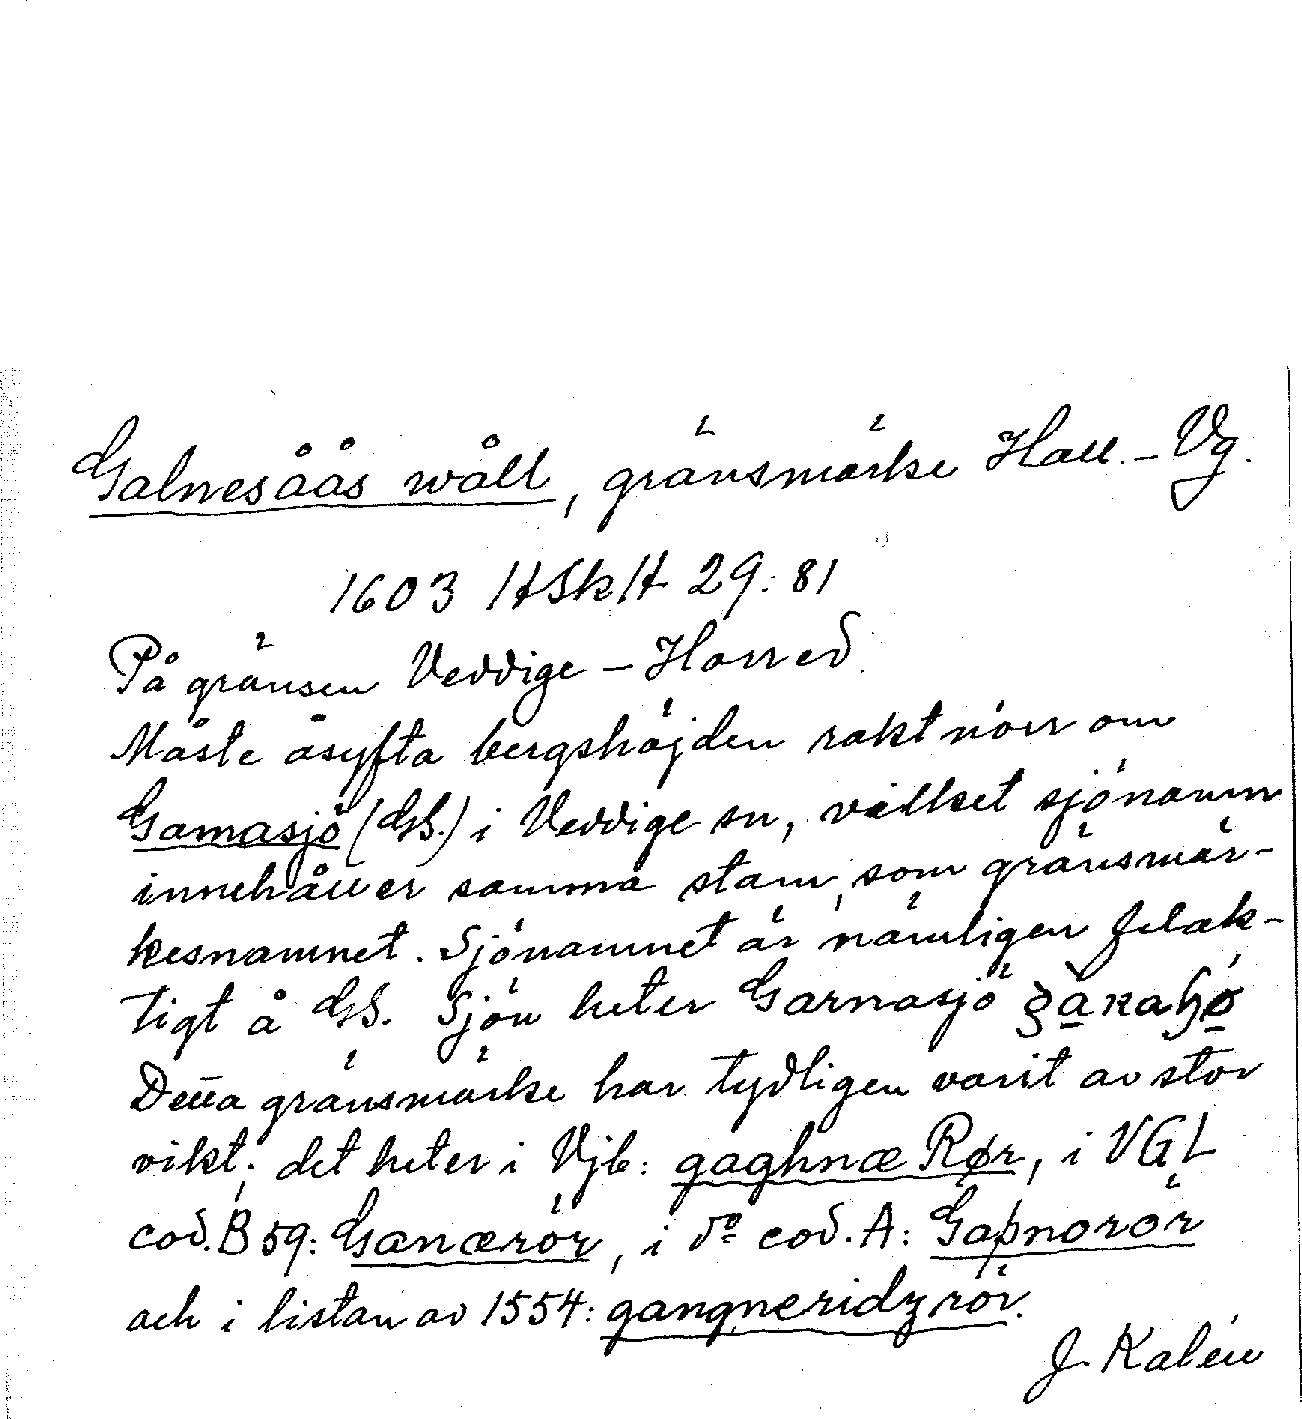 Galnesåås wåll, gränsmärke Hall.–Vg.
1603 HSkH 29:81
På gränsen Veddige – Horred.
Måste åsyfta bergshöjden rakt norr om
Gamasjö (GS.) i Veddige sn, vilket sjönamn
innehåller samma stam, som gränsmär-
kesnamnet. Sjönamnet är nämligen felak-
tigt å GS. Sjön heter Garnasjö
Detta gränsmärke har tydligen varit av stor
vikt; det heter i Vjb: gaghnæ Rør, i VGL
cod. B 59: Ganærör, i do cod. A: Gaþnorör
och i listan av 1554: gangneridzrör.
J. Kalén